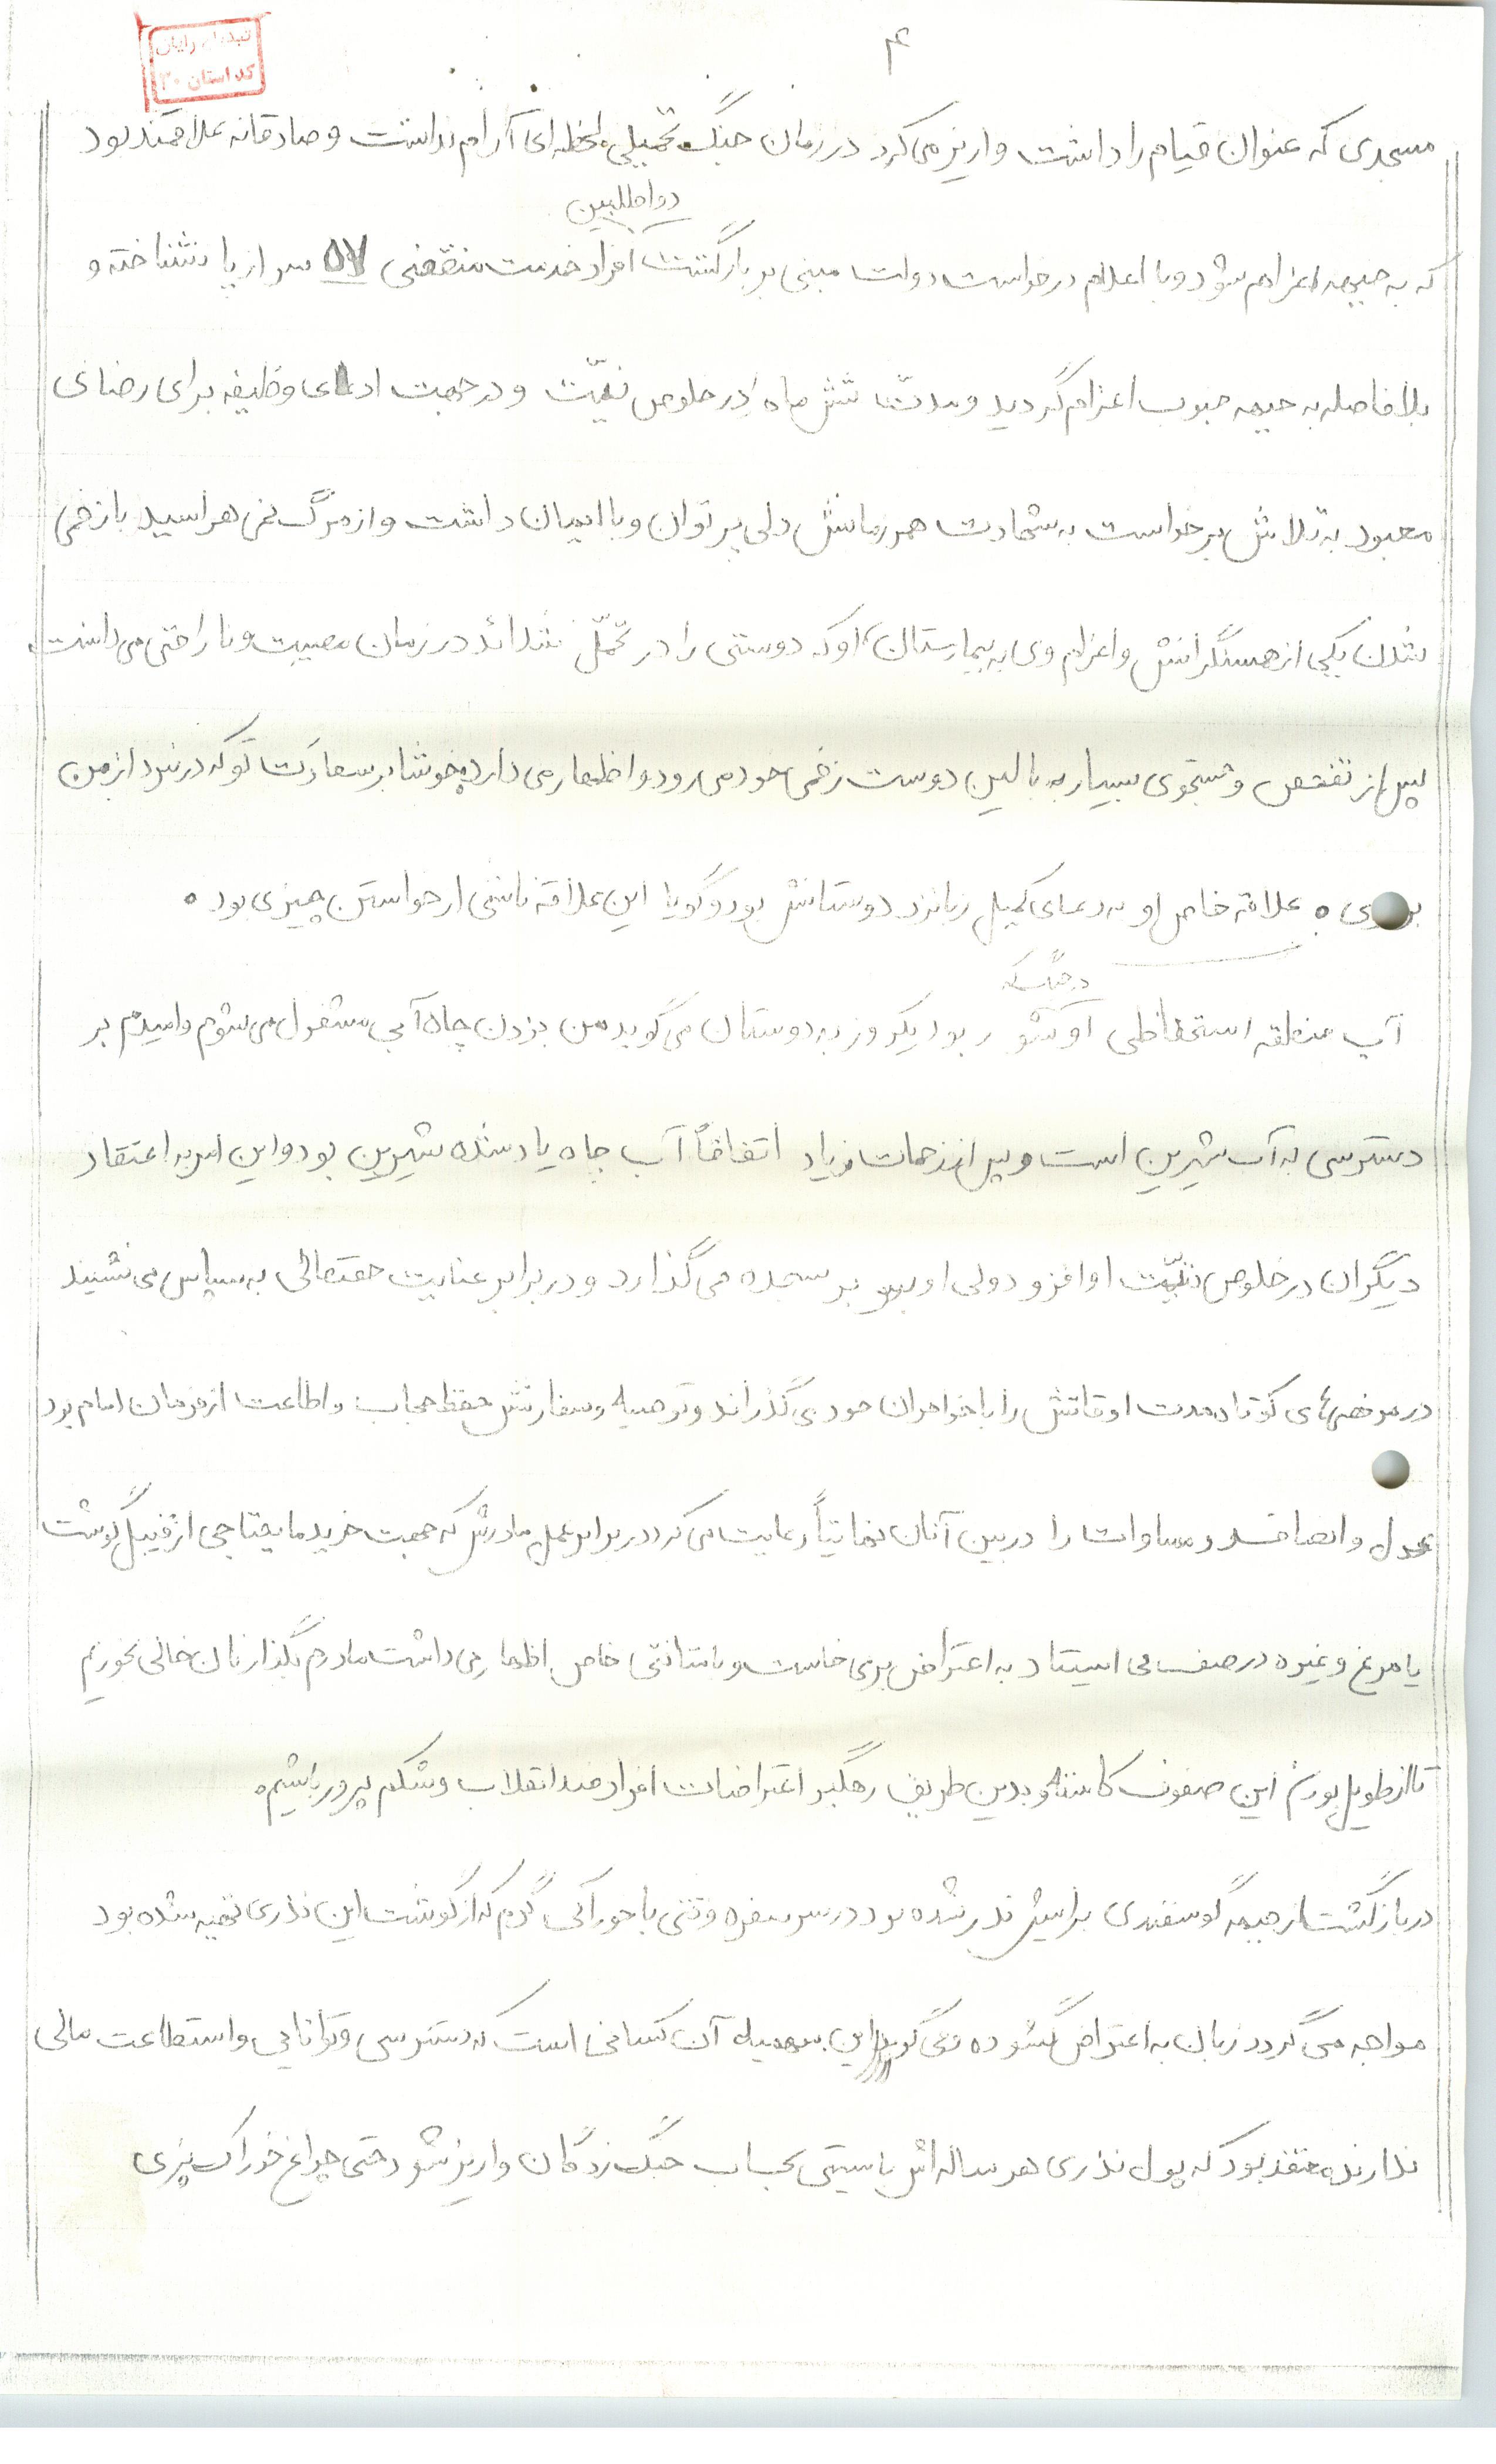 ۴
کد استان ۳۰
مسجدی که عنوان قیام را داشت واریز می کرد در زمان جنگ تحمیلی لحظه ای آرام نداشت و صادقانه علاقمند بود
داوطلبین
که به جبهه اعزام شود و با اعلام درخواست دولت مبنی بر بازگشت افراد خدمت منقضی ۵۷ سر از پا نشناخته و
بلافاصله به جبهه جنوب اعزام گردید و مدت شش ماه در خلوص نیّت و در جهت ادای وظیفه برای رضای
معبود به تلاش برخواست به شهادت همرزمانش دلی پر توان و با ایمان داشت و از مرگ نمی هراسید با زخمی
شدن یکی از همسنگرانش و اعزام وی به بیمارستان، او که دوستی را در تحمّل شدائد در زمان مصیبت و ناراحتی می دانست
پس از تفحص و جستجوی بسیار به بالین دوست زخمی خود می رود و اظهار می دارد، خوشا بر سعادتت تو که در نبرد از من
بردی ۰ علاقه خاص او به دعای کمیل زبانزد دوستانش بود و گویا این علاقه ناشی از خواستن چیزی بود ۰
در جنگ که
آب منطقه استحفاظی او شور بود یکروز به دوستان می گوید من بزدن چاه آبی مشغول می شوم و امیدم بر
دسترسی به آب شیرین است و پس از زحمات زیاد اتفاقاً آب چاه یاد شده شیرین بود و این امر به اعتقاد
دیگران در خلوص نیّت او افزود ولی او بر سجده می گذارد و در برابر عنایت حقتعالی به سپاس می نشیند
در مرخصیهای کوتاه مدت اوقاتش را با خواهران خود می گذراند و توصیه و سفارشش حفظ حجاب و اطاعت از فرمان امام بود
عدل و انصاف و مساوات را در بین آنان نهایتاً رعایت می کرد در برابر عمل مادرش که جهت خرید مایحتاجی از قبیل گوشت
یا مرغ و غیره در صف می ایستاد به اعتراض برمی خاست و با متانتی خاص اظهار می داشت مادرم بگذار نان خالی بخوریم
تا از طویل بودن این صفوف کاسته و بدین طریق رهگیر اعتراضات افراد ضد انقلاب و شکم پرور باشیم ۰
در بازگشت از جبهه گوسفندی برایش نذر شده بود در سر سفره وقتی با خوراکی گرم که از گوشت این نذری تهیه شده بود
مواجه می گردد زبان به اعتراض گشوده و می گوید این سهمیه آن کسانی است که دسترسی و توانایی و استطاعت مالی
ندارند، معتقد بود که پول نذری هر ساله اش بایستی بحساب جنگ زدگان واریز شود حتی چراغ خوراک پزی